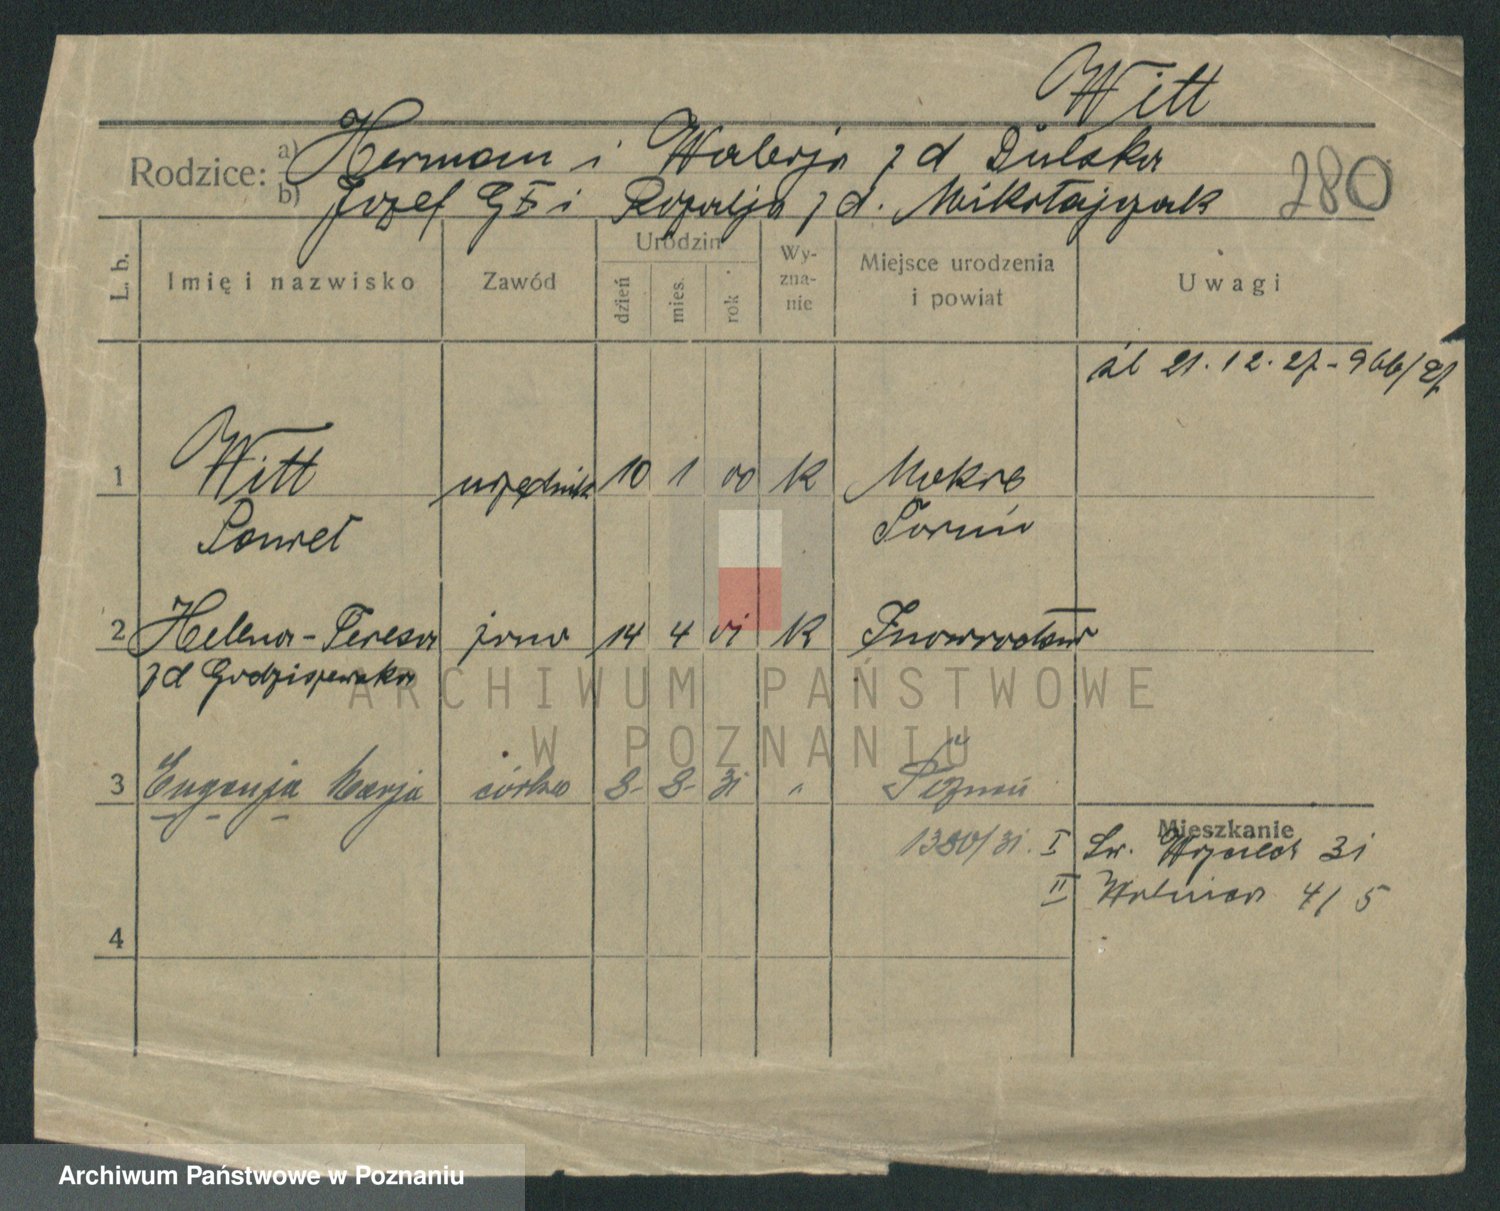 Witt
Rodzice: a) Herman i Walerja z d Dulska
b) Jozef G i Rozalja z d. Mikołajczak
280
L. b. Imię i nazwisko Zawód Urodzin Wyznanie Miejsce urodzenia i powiat Uwagi
dzień mies. rok
śl 21. 12. 27 - 966/27
1 Witt urzędnik 10 1 00 K Mokre
Paweł Toruń
2 Helena - Teresa żona 14 4 01 K Inowrocław
z d Godziszewska
3 Eugenja Marja córka 8. 8. 31 " Poznań
Mieszkanie
1380/31. I Św. Wojciech 31
II Wolnica 4/5
4
ARCHIWUM PAŃSTWOWE
W POZNANIU
Archiwum Państwowe w Poznaniu